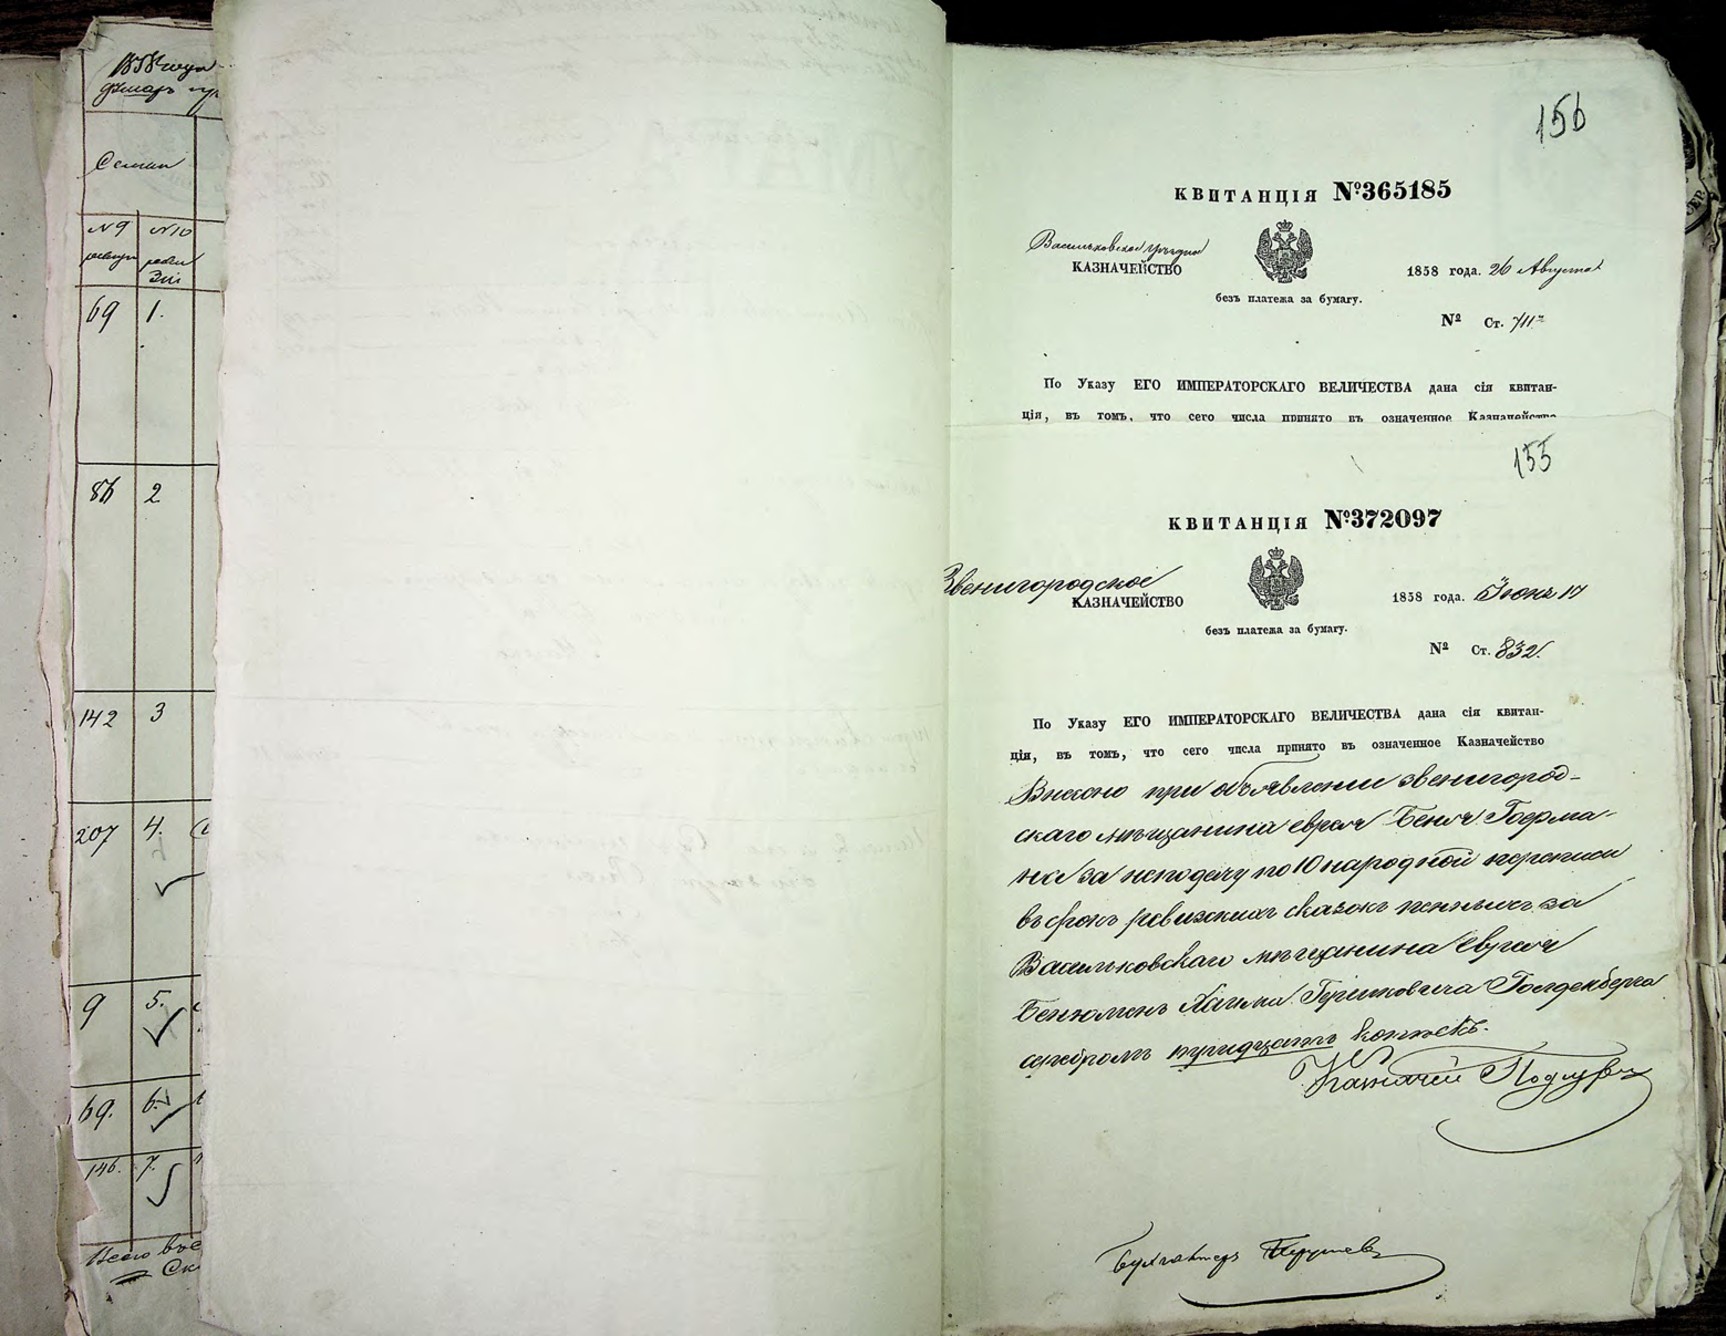 1858 года
Семьи
№9 №10
69 1.
86 2
142 3
207 4.
9 5.
69. 6.
146. 7.
Всего
156
КВИТАНЦІЯ №365185
Васильковское уѣздное
КАЗНАЧЕЙСТВО
1858 года. 26 Августа
безъ платежа за бумагу.
№ Ст. 711
По Указу ЕГО ИМПЕРАТОРСКАГО ВЕЛИЧЕСТВА дана сія квитан-
ція, въ томъ, что сего числа принято въ означенное Казначейство
155
КВИТАНЦІЯ №372097
Звенигородское
КАЗНАЧЕЙСТВО
1858 года. Іюнь 17
безъ платежа за бумагу.
№ Ст. 832.
По Указу ЕГО ИМПЕРАТОРСКАГО ВЕЛИЧЕСТВА дана сія квитан-
ція, въ томъ, что сего числа принято въ означенное Казначейство
Внесено при объявленіи звенигород-
скаго мѣщанина еврея
за неподачу по 10 народной переписи
въ срокъ ревизкихъ сказокъ за
Васильковскаго мѣщанина еврея
Хаима Гершковича Голденберга
серебромъ копѣекъ.
Казначей
Бухгалтеръ